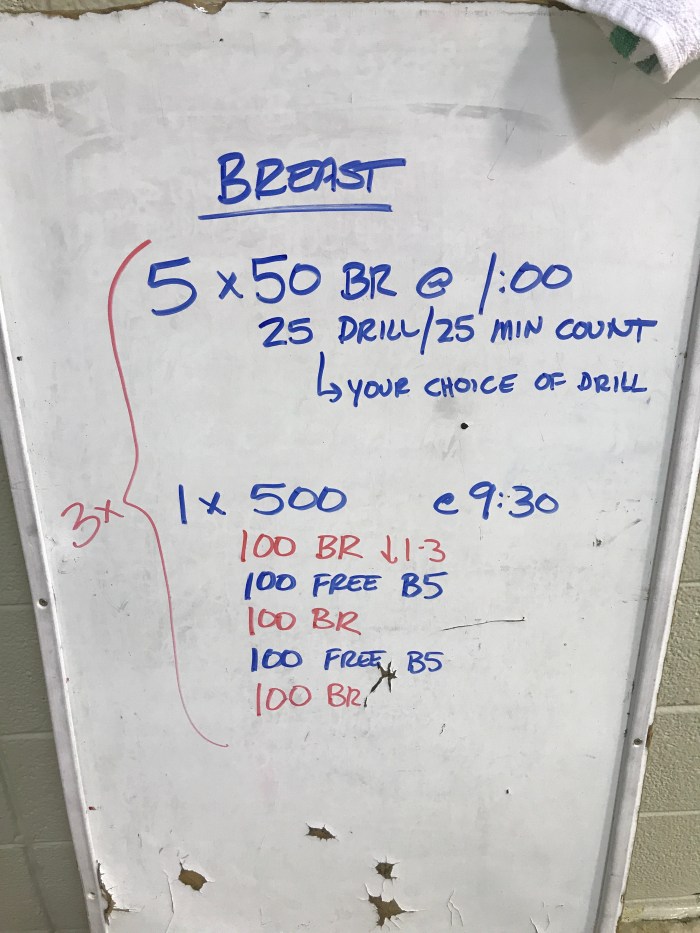 BREAST
5 x 50 BR @ 1:00
25 DRILL/25 MIN COUNT
↳ YOUR CHOICE OF DRILL
3x
1 x 500 @ 9:30
100 BR ↓1-3
100 FREE B5
100 BR
100 FREE B5
100 BR